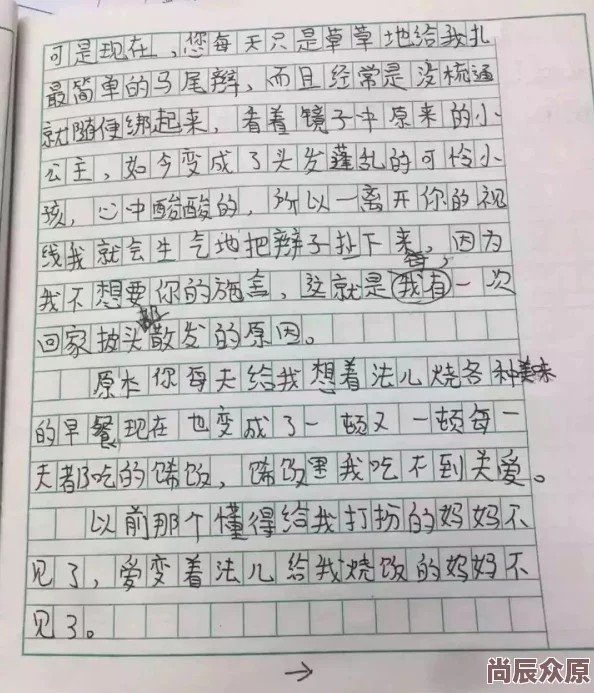 可是现在，您每天只是草草地给我扎
最简单的马尾辫，而且经常是没梳通
就随便绑起来，看着镜子中原来的小
公主，如今变成了头发蓬乱的可怜小
孩，心中酸酸的，所以一离开你的视
线我就会生气地把辫子扯下来，因为
我不想要你的施舍，这就是我每一次
回家披头散发的原因。
原本你每天给我想着法儿烧各种美味
的早餐现在也变成了一顿又一顿每一
天都吃的馊饭，馊饭里我吃不到关爱。
以前那个懂得给我打扮的妈妈不
见了，爱变着法儿给我烧饭的妈妈不
见了。
→
尚辰众原